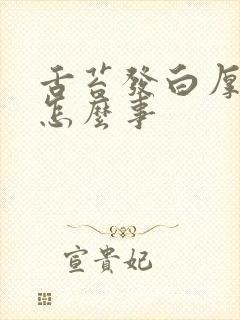 舌苔發白厚
怎麼事
宣貴妃